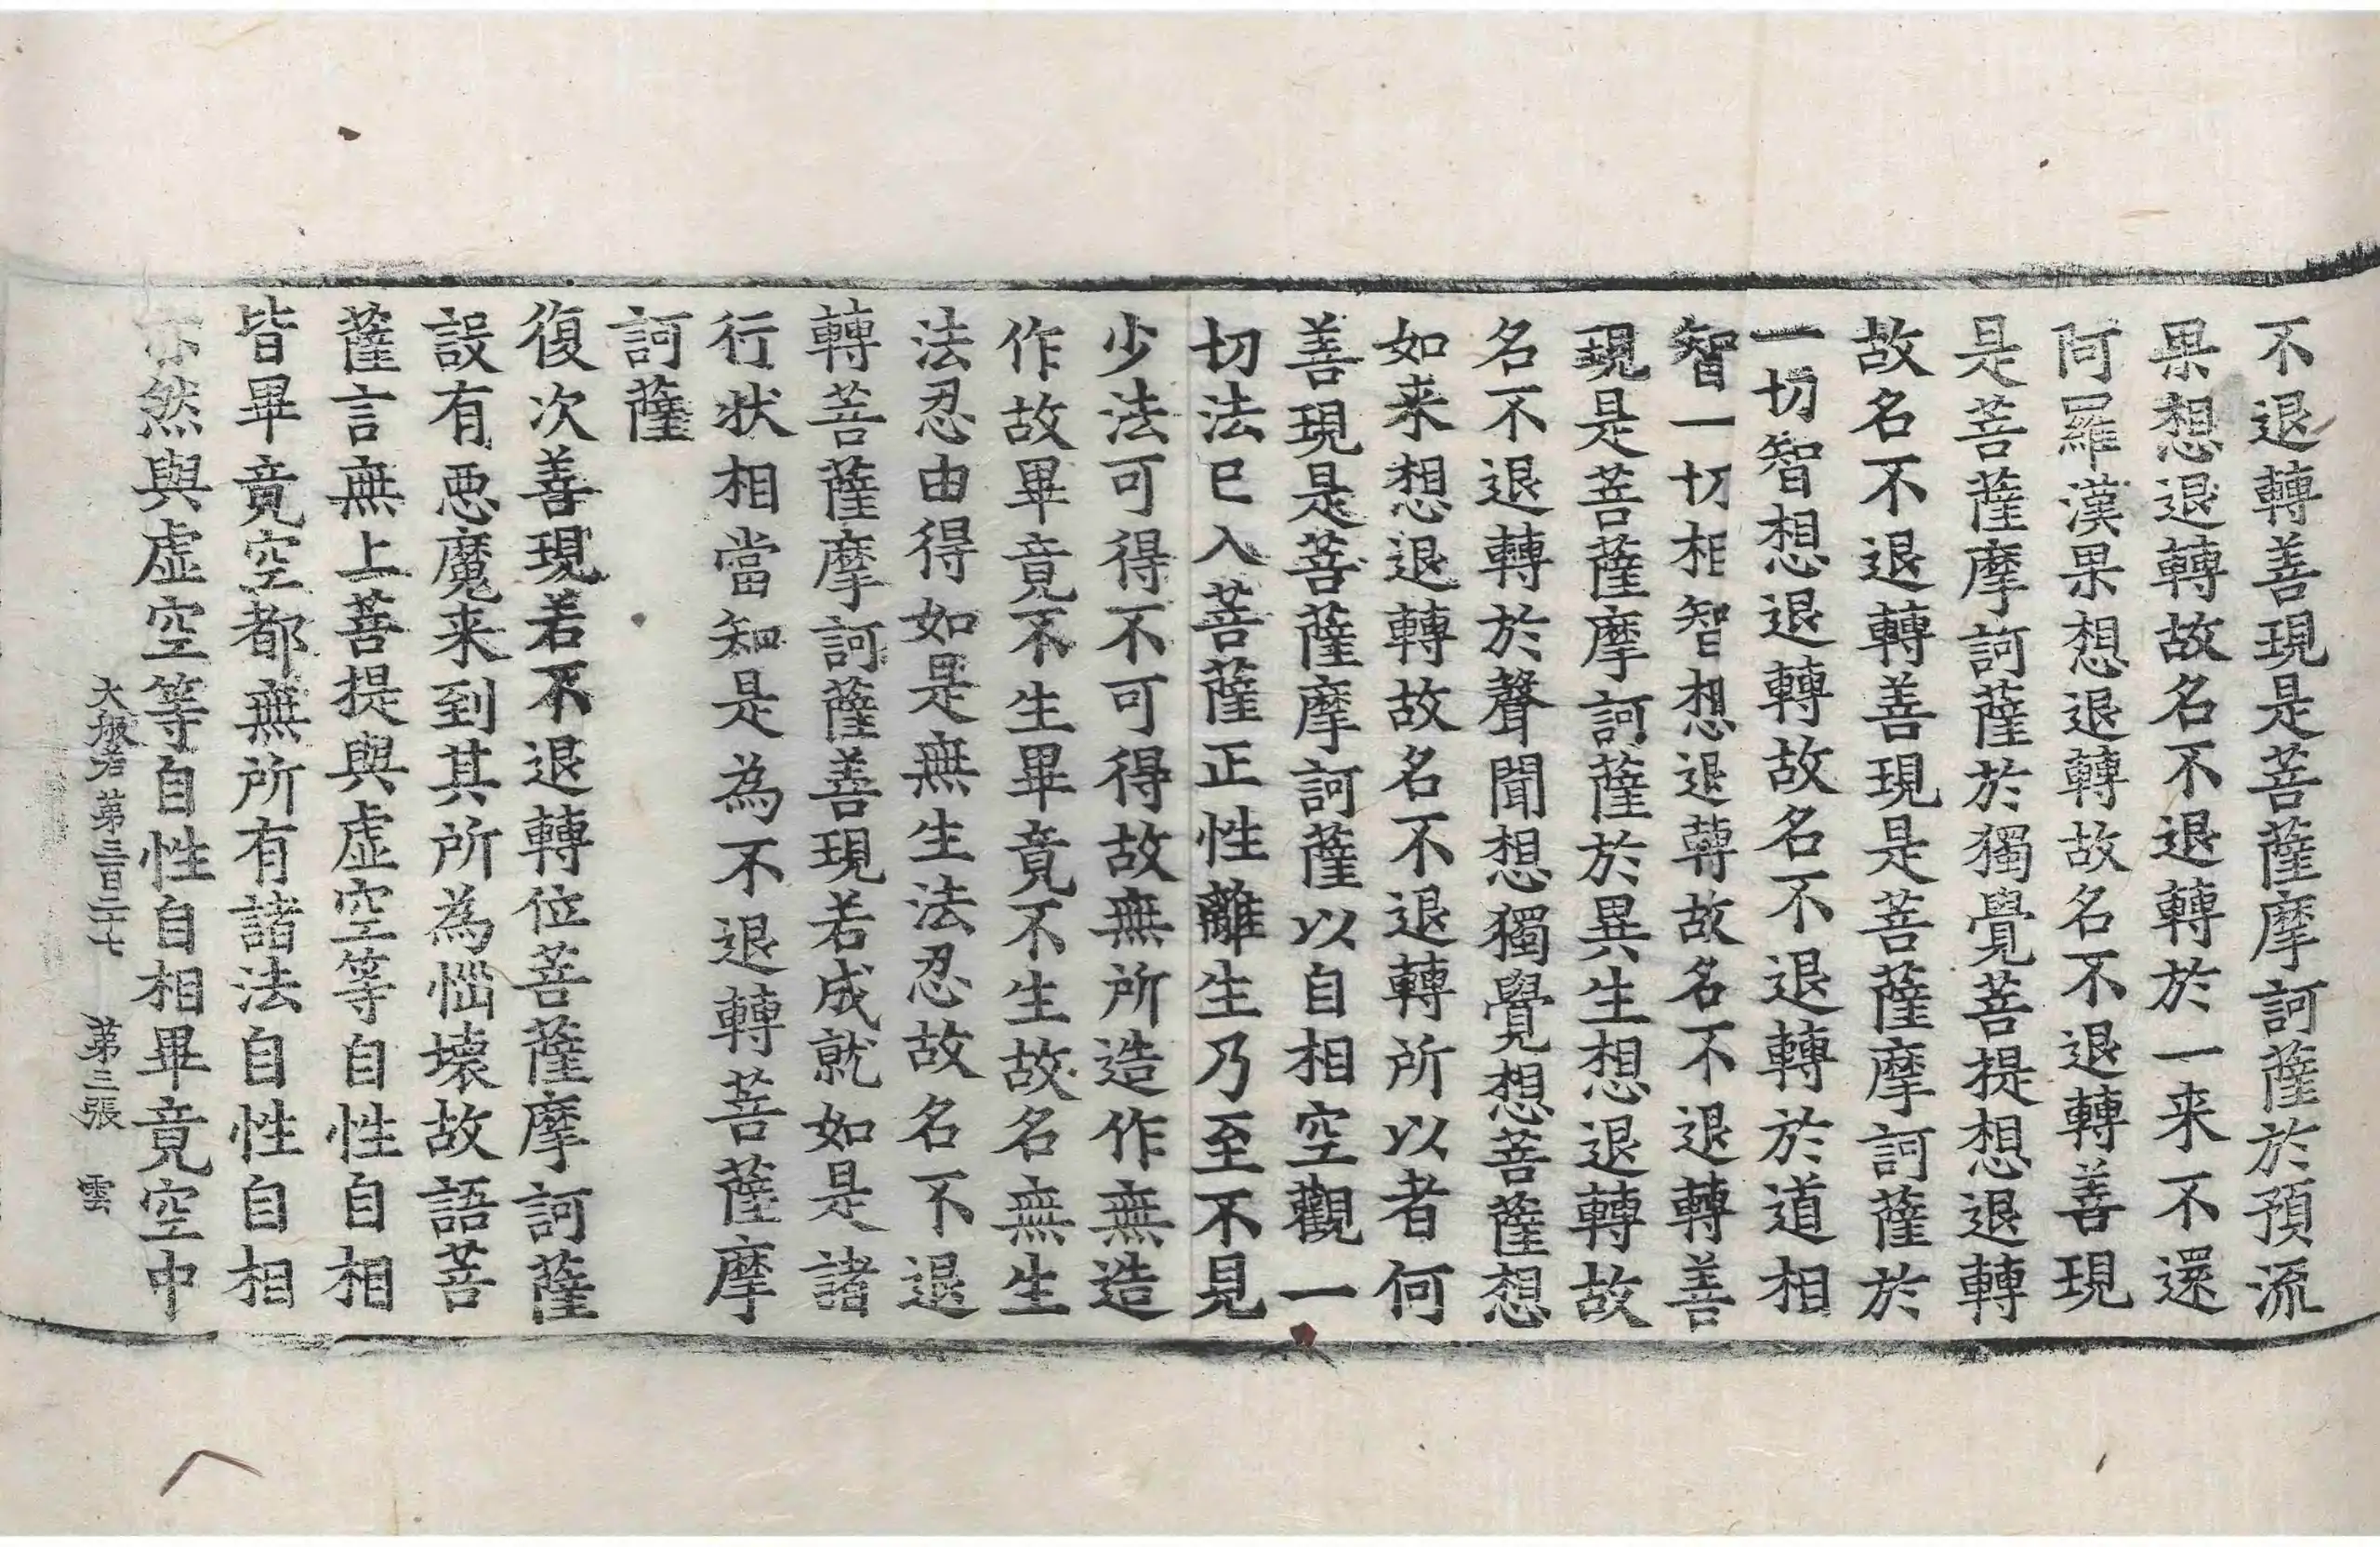 不退轉善現是菩薩摩訶薩於預流
果想退轉故名不退轉於一来不還
阿羅漢果想退轉故名不退轉善現
是菩薩摩訶薩於獨覺菩提想退轉
故名不退轉善現是菩薩摩訶薩於
一切智想退轉故名不退轉於道相
智一切相智想退轉故名不退轉善
現是菩薩摩訶薩於異生想退轉故
名不退轉於聲聞想獨覺想菩薩想
如来想退轉故名不退轉所以者何
善現是菩薩摩訶薩以自相空觀一
切法已入菩薩正性離生乃至不見
少法可得不可得故無所造作無造
作故畢竟不生畢竟不生故名無生
法忍由得如是無生法忍故名不退
轉菩薩摩訶薩善現若成就如是諸
行状相當知是為不退轉菩薩摩
訶薩
復次善現若不退轉位菩薩摩訶薩
設有惡魔来到其所為惱壞故語菩
薩言無上菩提與虛空等自性自相
皆畢竟空都無所有諸法自性自相
亦然與虛空等自性自相畢竟空中
大般若第三百二十七 第三張 雲